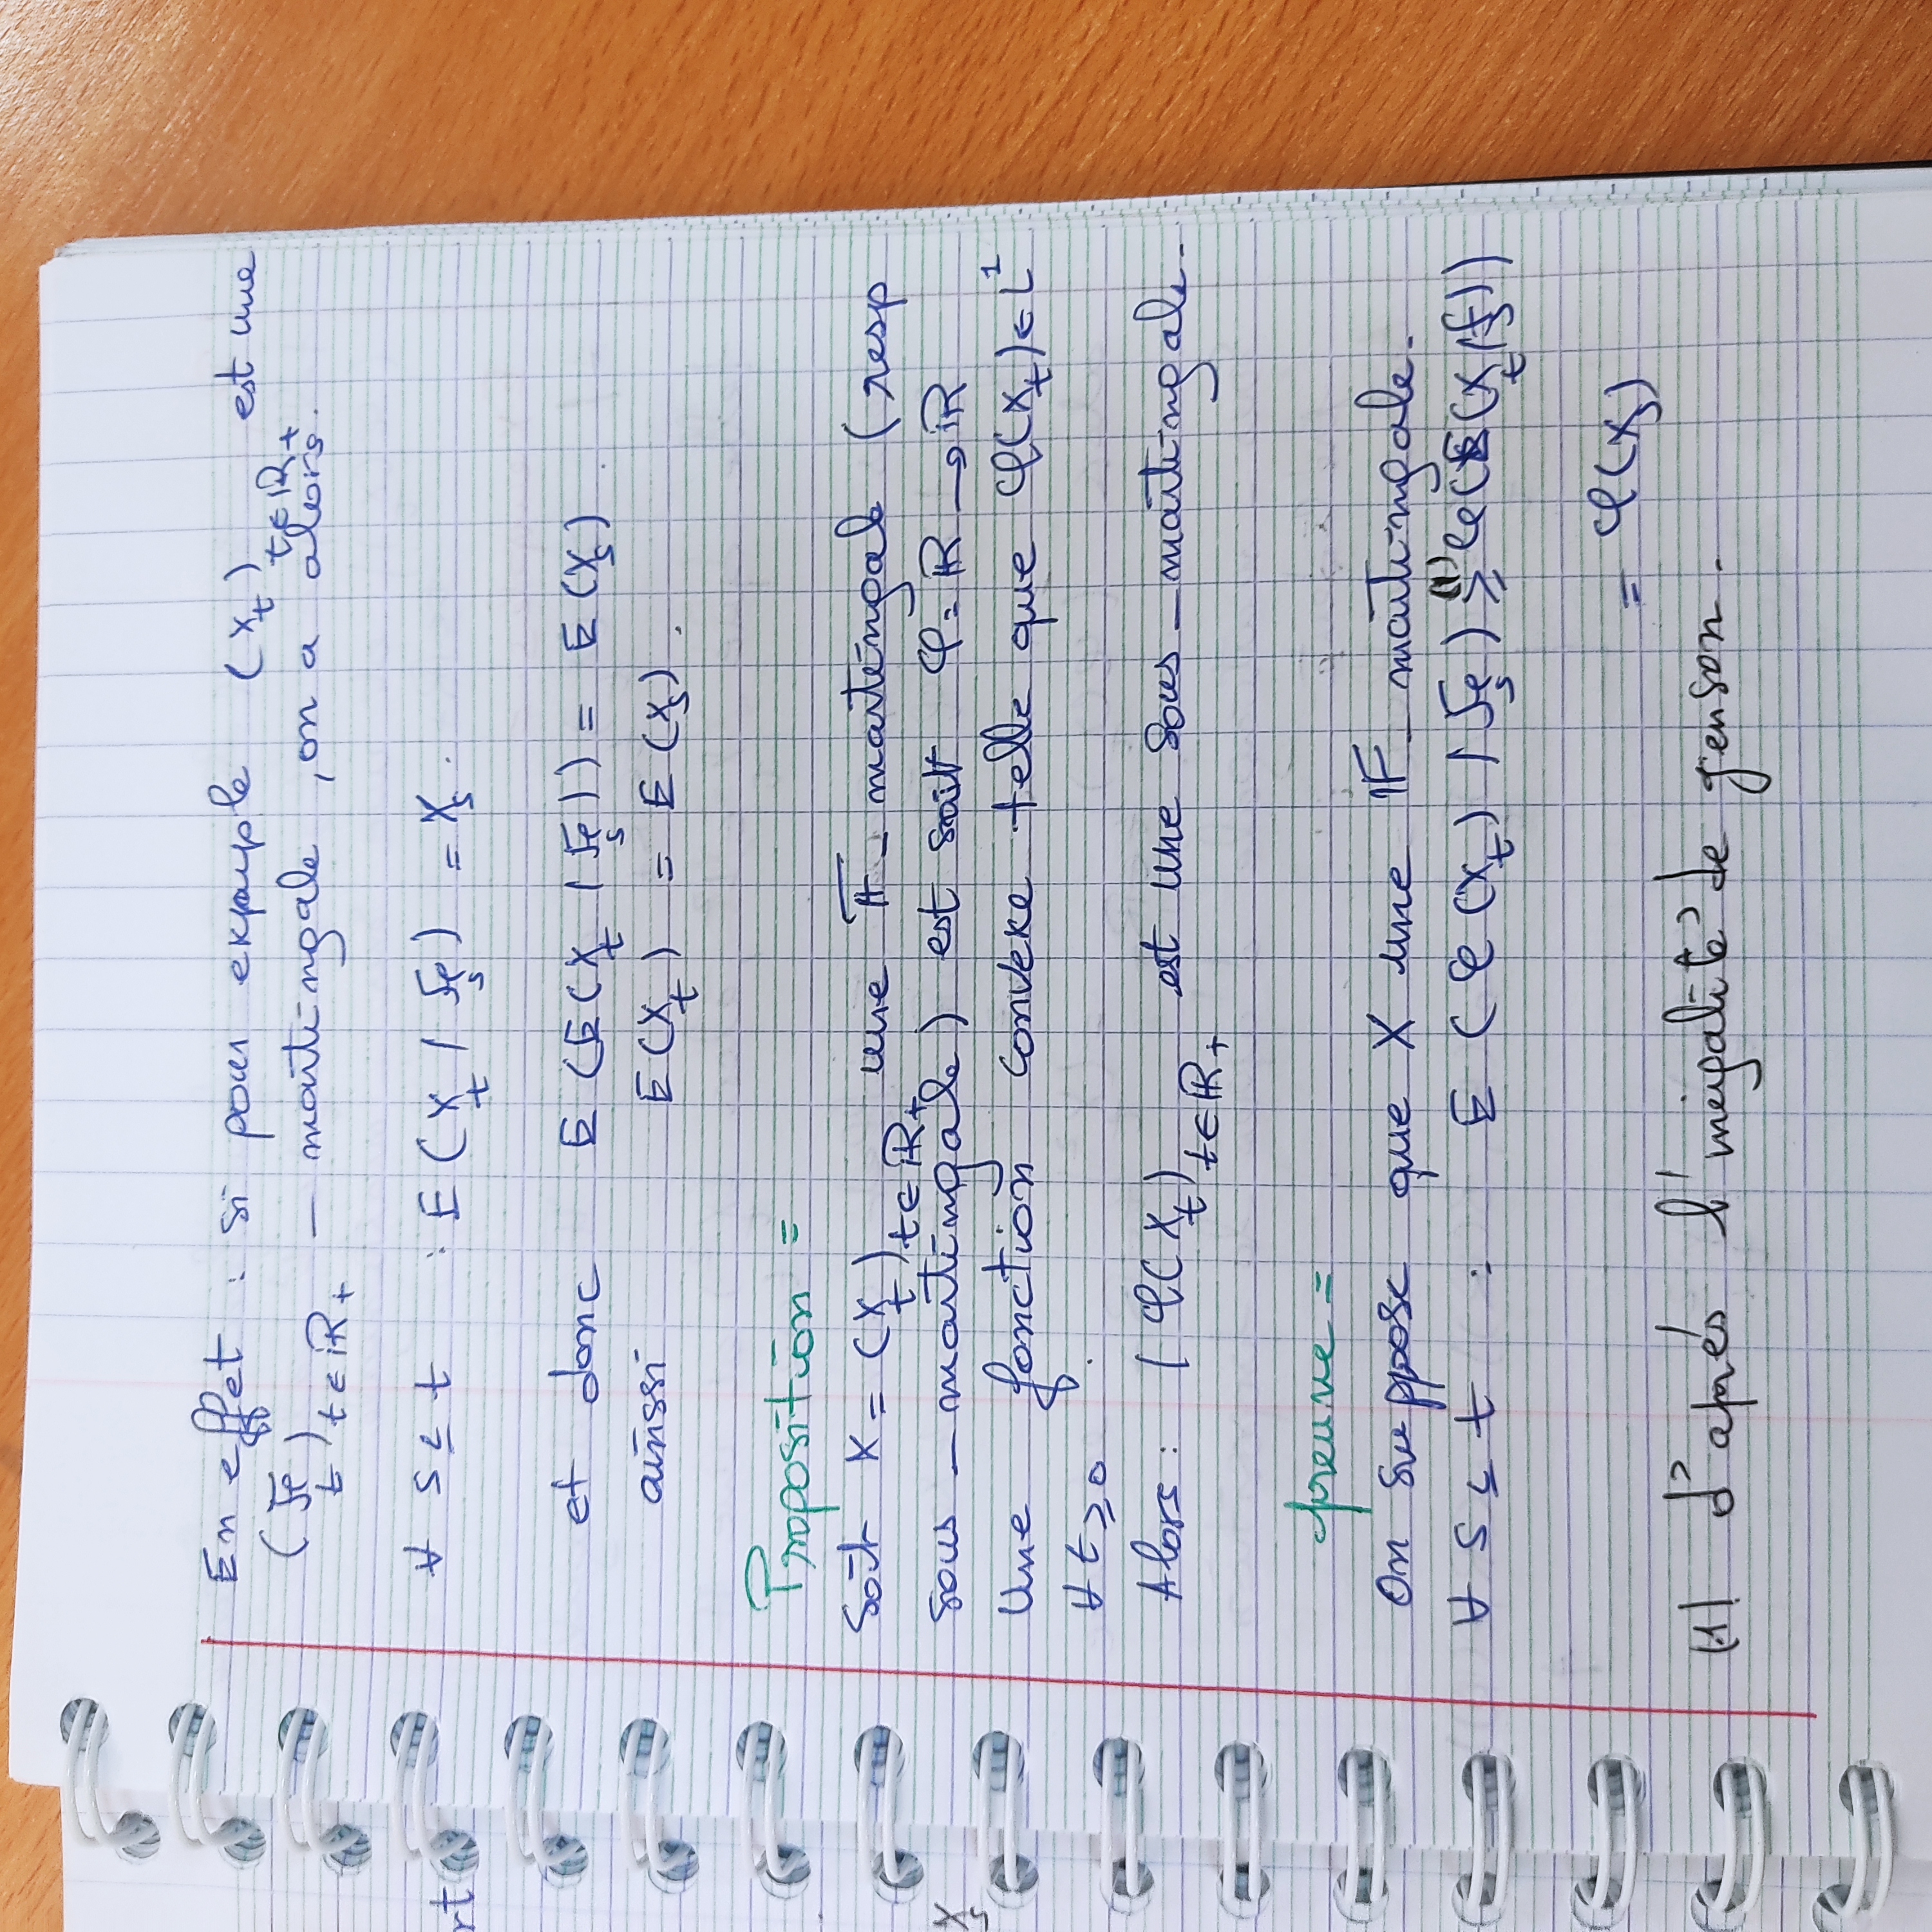 En effet : si pour exemple (X_t)_{t∈ℝ+} est une
(𝓕_t)_{t∈ℝ+} – martingale, on a alors.
∀ s ≤ t : E(X_t / 𝓕_s) = X_s.
et donc E(E(X_t / 𝓕_s)) = E(X_s).
ainssi E(X_t) = E(X_s).
Proposition =
Soit X = (X_t)_{t∈ℝ+} une 𝔽-martingale (resp
sous – martingale) est soit φ: ℝ → ℝ
Une fonction convexe telle que φ(X_t) ∈ L^1
∀ t ≥ 0.
Alors : (φ(X_t)_{t∈ℝ+} est une sous – martingale.
preuve =
On suppose que X une 𝔽-martingale.
∀ s ≤ t : E(φ(X_t) / 𝓕_s) ≥^{(1)} φ(E(X_t/f_s))
= φ(X_s)
(1) d'aprés l'inégalité de jenson.
rt
X_s